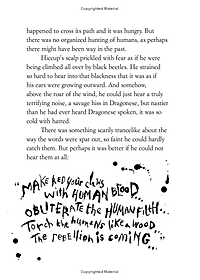 Copyrighted Material
happened to cross its path and it was hungry. But
there was no organized hunting of humans, as perhaps
there might have been way in the past.
Hiccup's scalp prickled with fear as if he were
being climbed all over by black beetles. He strained
so hard to hear into that blackness that it was as if
his ears were growing outward. And somehow,
above the roar of the wind, he could just hear a truly
terrifying noise, a savage hiss in Dragonese, but nastier
than he had ever heard Dragonese spoken, it was so
cold with hatred.
There was something scarily trancelike about the
way the words were spat out, so faint he could hardly
catch them. But perhaps it was better if he could not
hear them at all:
"MAKE RED your claws
with HUMAN BLOOD...
OBLITERATE the HUMAN FILTH...
Torch the humans like a wood
The rebellion is coming..."
Copyrighted Material